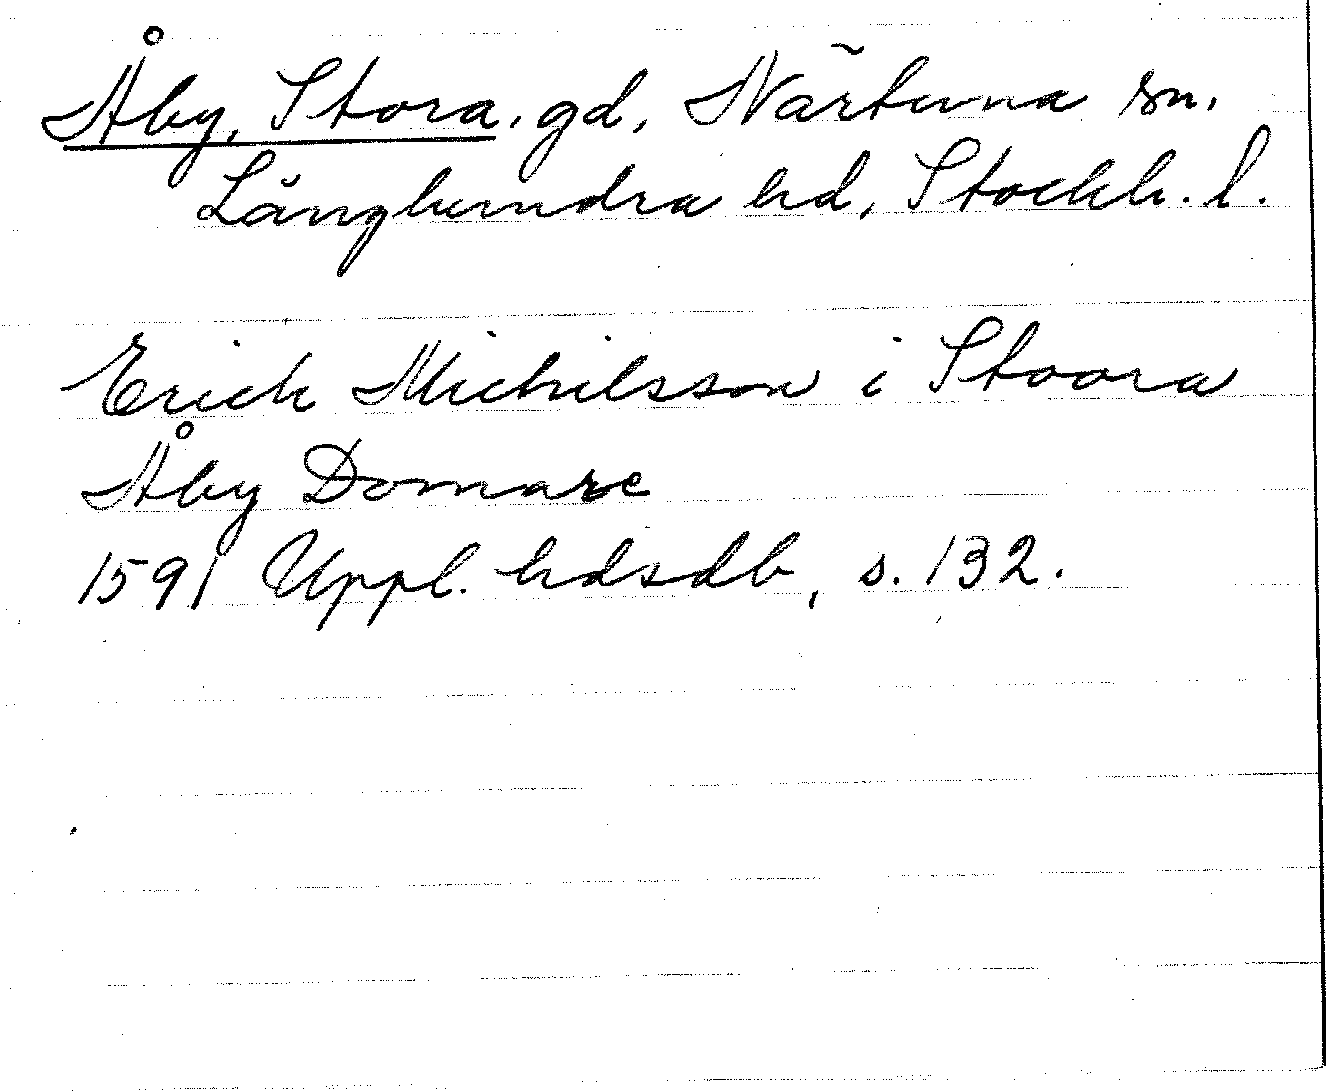 Åby, Stora, gd, Närtuna sn.
Långhundra hd, Stockh. l.
Erich Michilsson i Stoora
Åby Domare
1591 Uppl. hdsdb, s. 132.